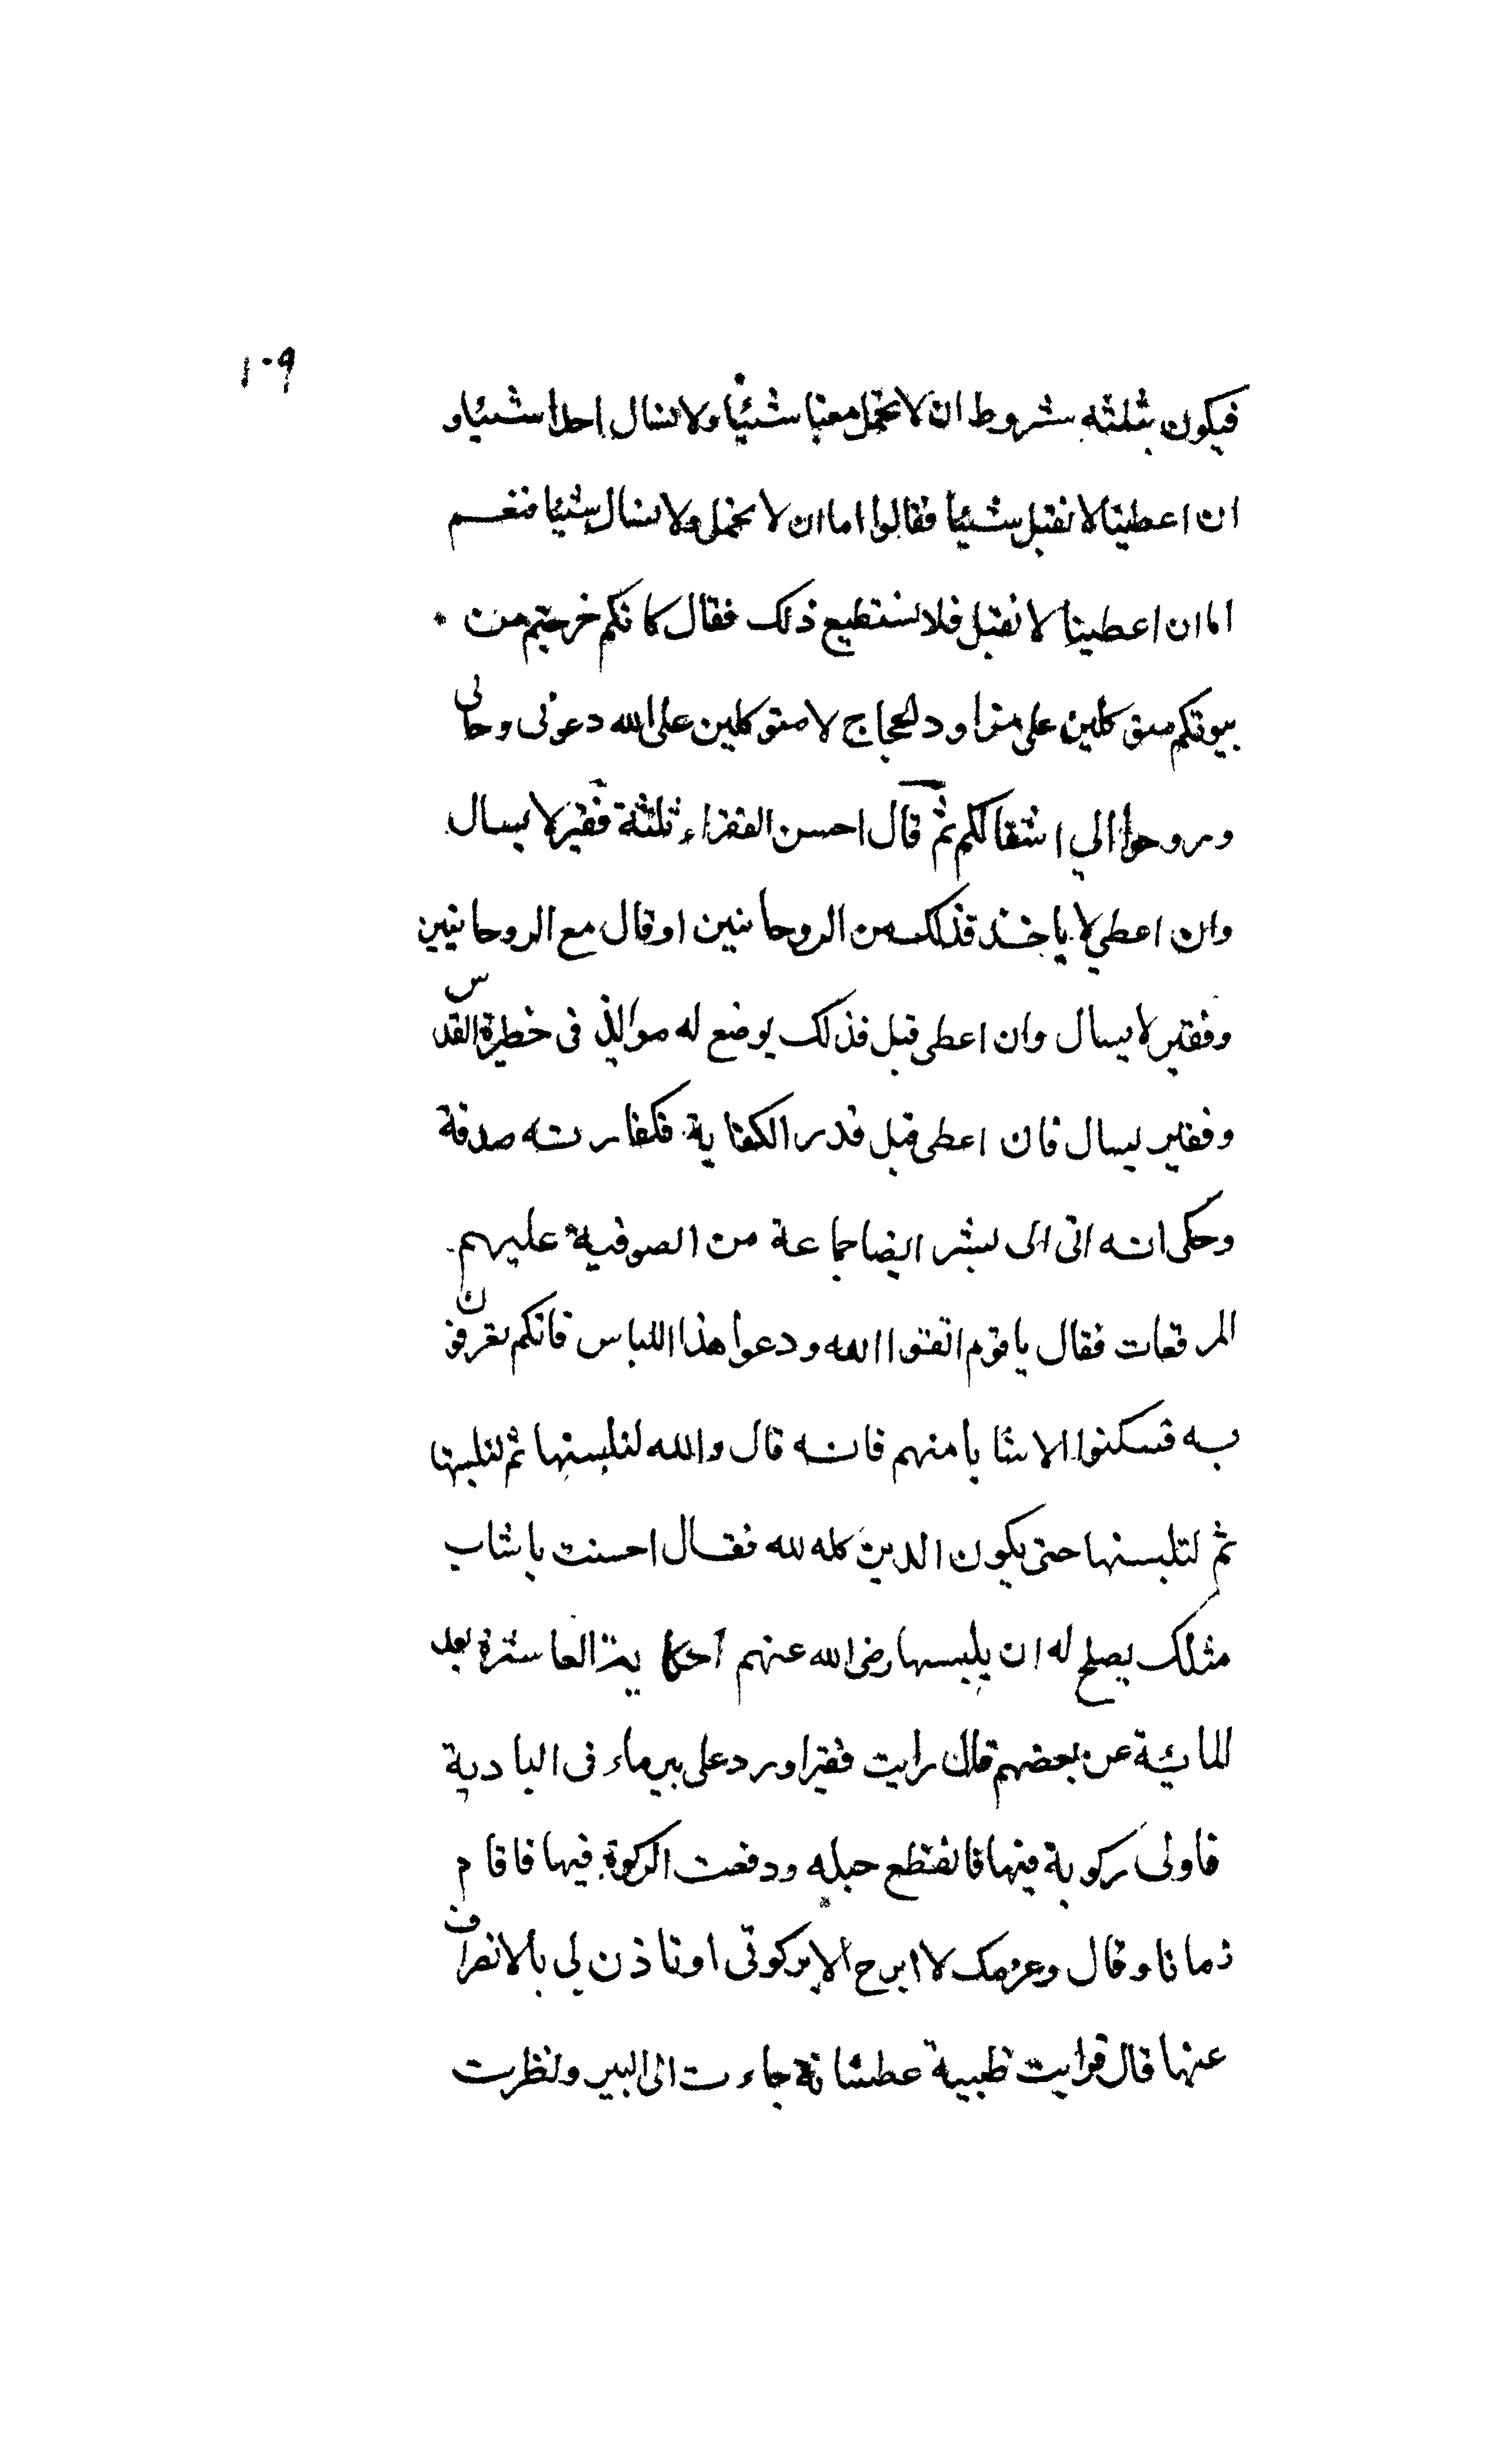 ١٠٩
فيكون بثلثه شروط ان لا نحمل معنا شيئا ولا نسال احدا شيئا و
ان اعطينا لا نقبل شيئا فقالوا اما ان لا نحمل ولا نسال شيئا فنعم
اما ان اعطينا لا نقبل فلا نستطيع ذلك فقال كانكم خرجتم من
بيوتكم متوكلين على مزاود الحجاج لا متوكلين على الله دعونى وحالى
وروحوا الي اشتغالكم ثم قال احسن الفقراء ثلثة فقير لا يسال
وان اعطي لا ياخذ فذلك من الروحانين او قال مع الروحانيين
وفقير لا يسال وان اعطى قبل فذلك يوضع له موايذ فى خطيرة القدس
وفقير يسال فان اعطى قبل قدر الكفاية فكفارته صدقة
وحكى انه اتى الى بشر ايضا جماعة من الصوفية عليهم
المرقعات فقال يا قوم اتقوا الله ودعوا هذا اللباس فانكم تعرفون
به فسكتوا الا شابا منهم فانه قال والله لنلبسنها ثم لنلبسنها
ثم لنلبسنها حتى يكون الدين كله لله فقال احسنت يا شاب
مثلك يصلح له ان يلبسها رضى الله عنهم احكاية العاشرة بعد
المائية عن بعضهم قال رايت فقيرا ورد على بير ماء فى البادية
فاولى ركوية فيها فانقطع حبله ودفعت الركوة فيها فاقام
زمانا وقال وعزمك لا ابرح الا بركوتى او تاذن لي بالانصراف
عنها قال فرايت ظبية عطشانة جاءت الى البير ونظرت